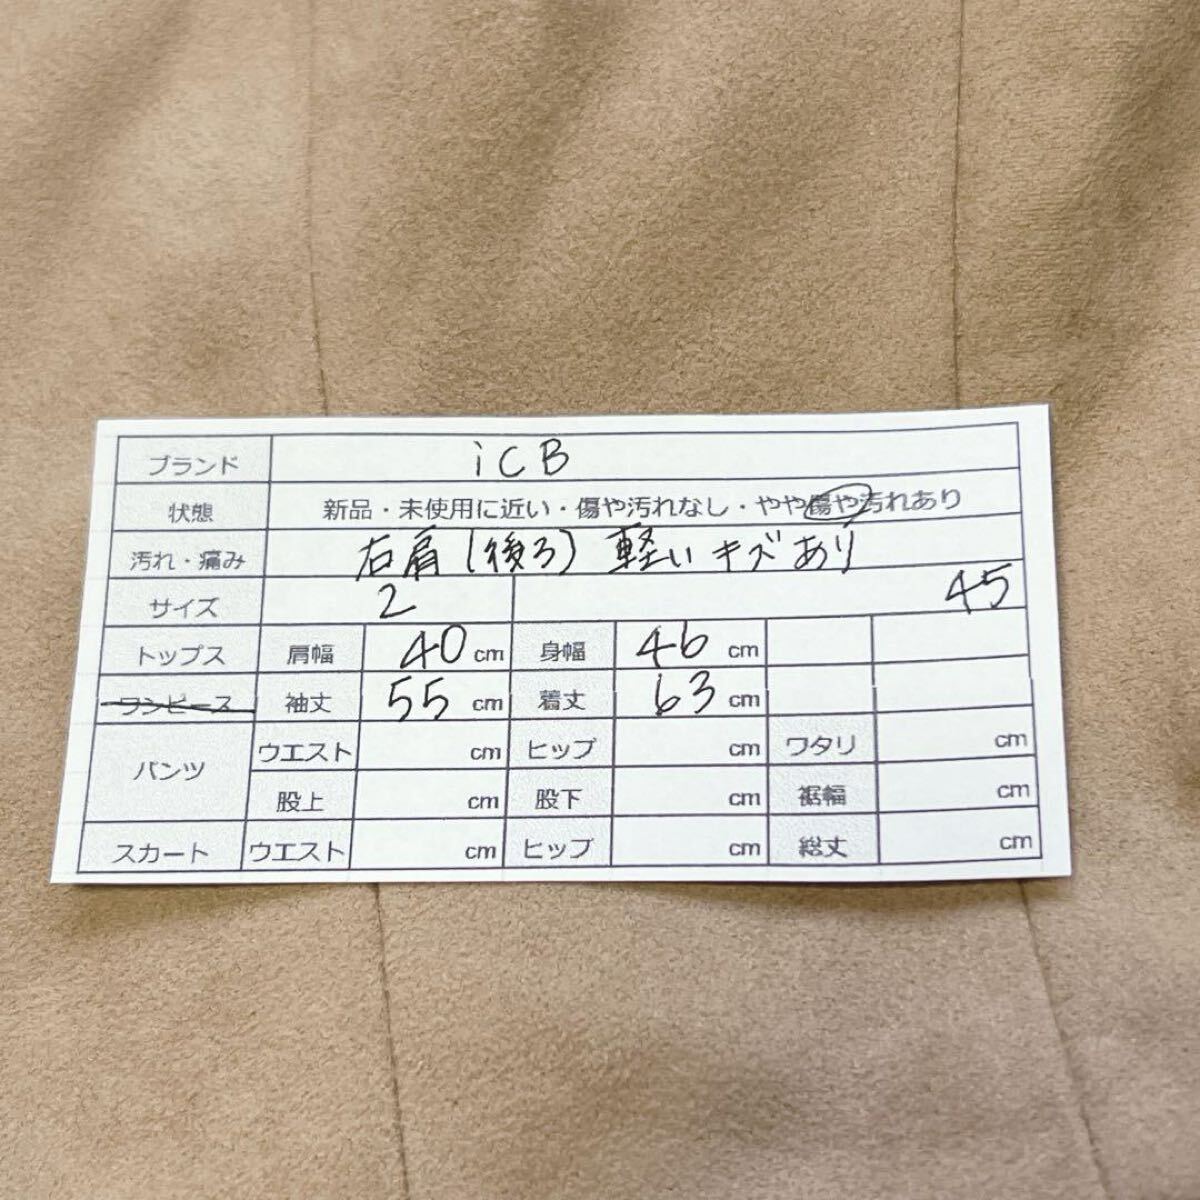 ブランド iCB
状態 新品・未使用に近い・傷や汚れなし・やや傷や汚れあり
汚れ・痛み 右肩(後ろ) 軽いキズあり
サイズ 2 45
トップス 肩幅 40 cm 身幅 46 cm
ワンピース 袖丈 55 cm 着丈 63 cm
パンツ ウエスト cm ヒップ cm ワタリ cm
股上 cm 股下 cm 裾幅 cm
スカート ウエスト cm ヒップ cm 総丈 cm